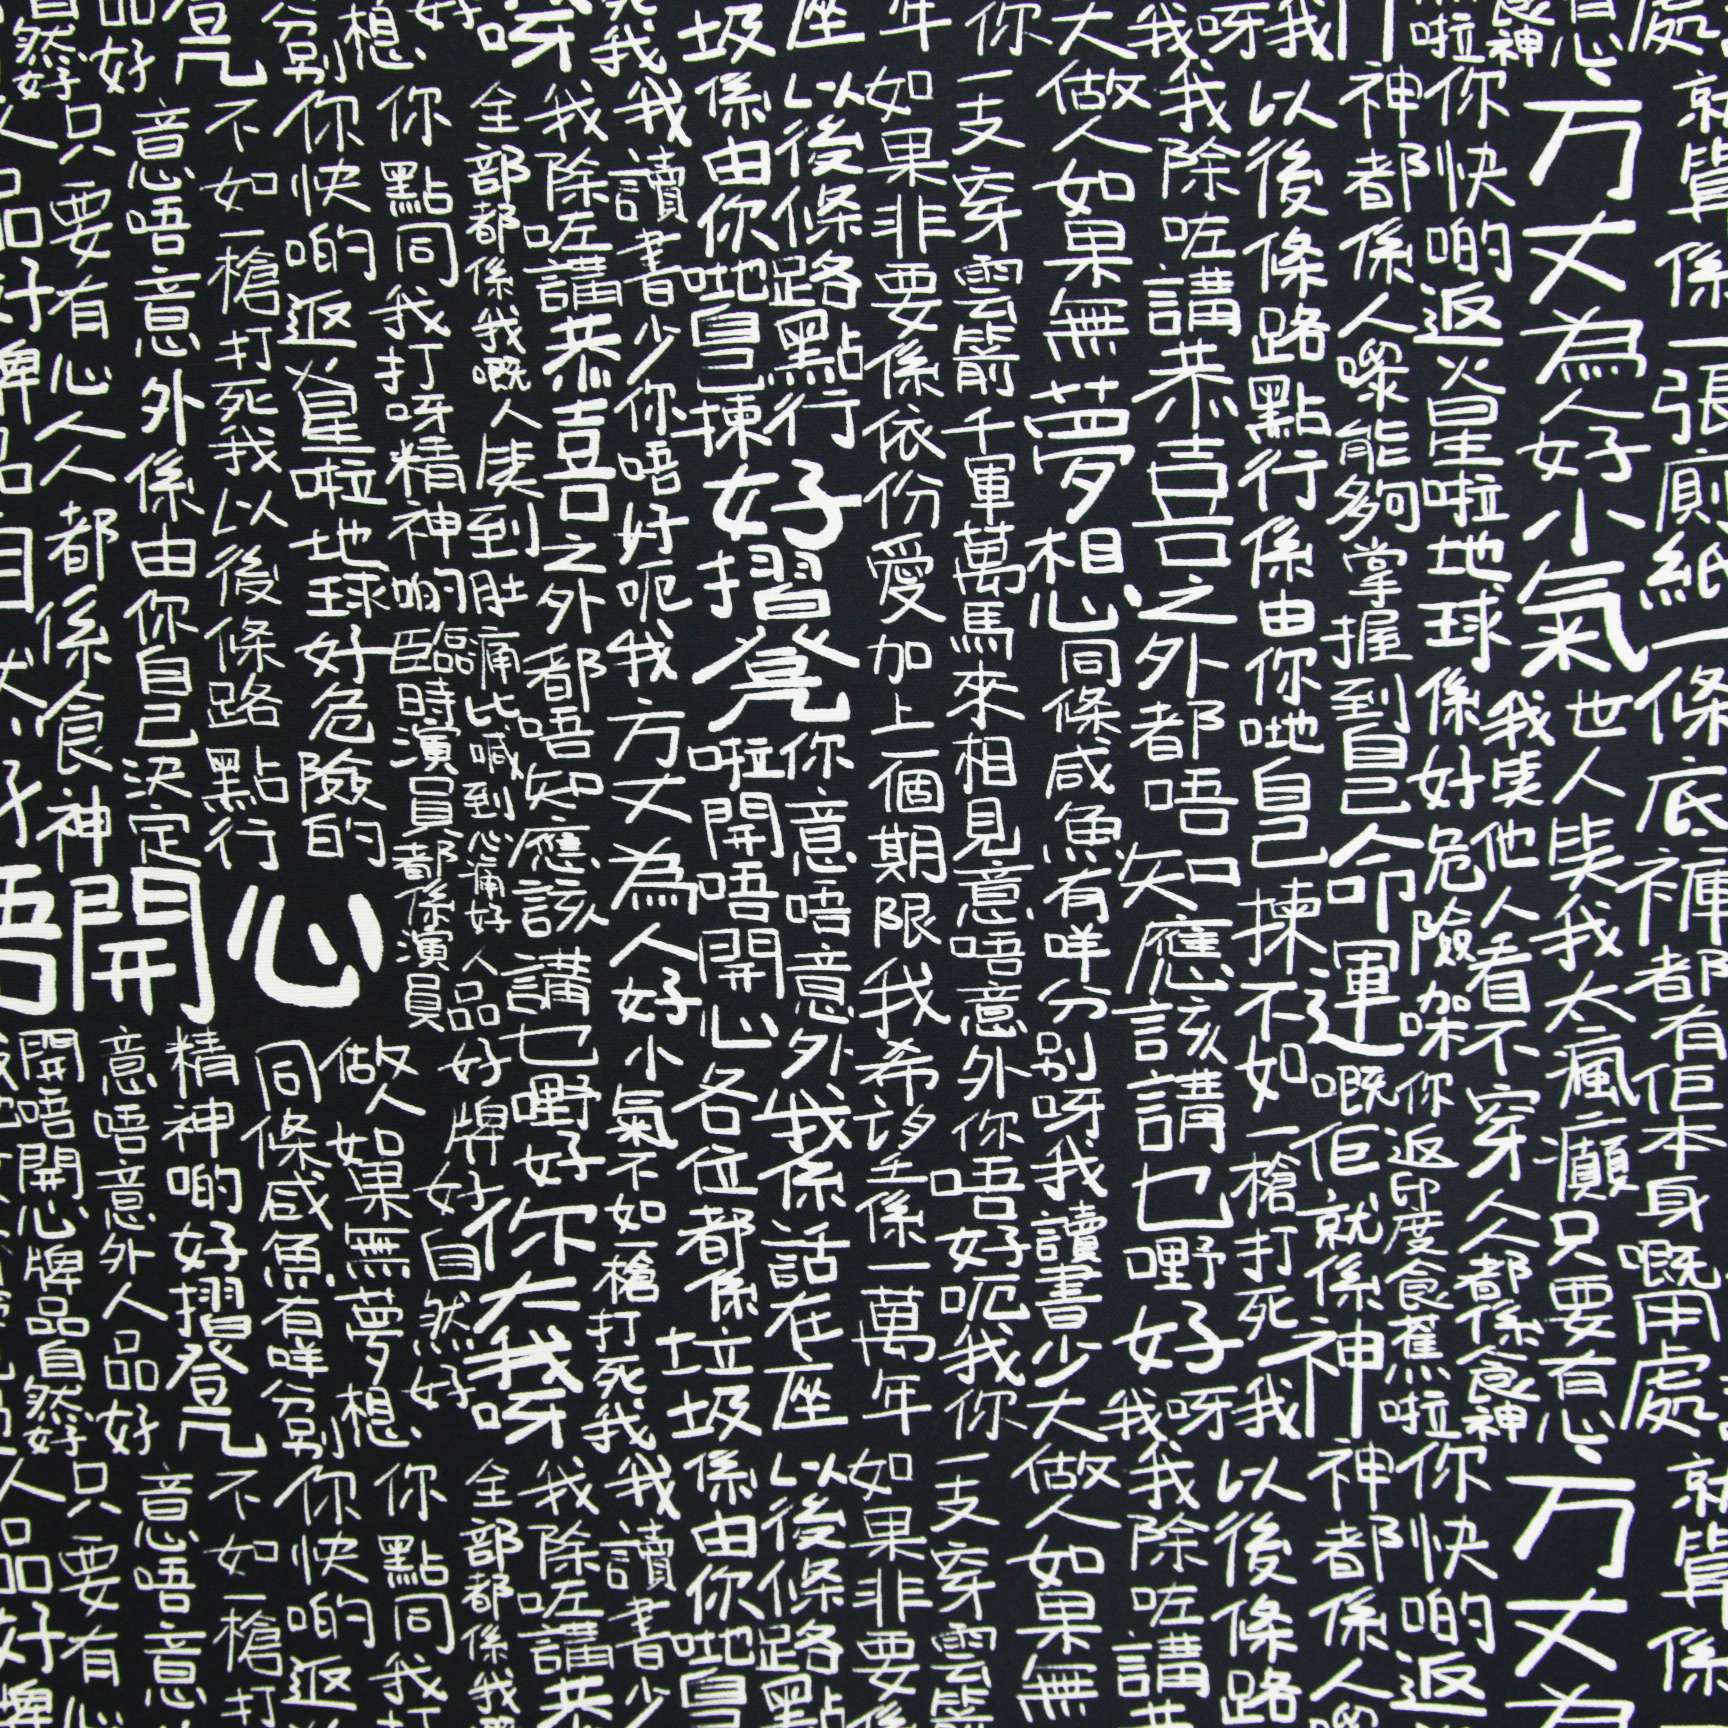 處
就算係一張廁紙一條底褲都有佢本身嘅用處
就算係
有心
方丈為人好小氣
世人笑我太瘋癲只要有心
方丈為
食神
我笑他人看不穿人人都係食神
啦
你快啲返火星啦地球係好危險㗎你返印度食蕉啦
你快啲返
神都係人嚟能夠掌握到自己命運嘅佢就係神
神都係人
我
以後條路點行係由你哋自己揀不如一槍打死我
以後條路
我呀
我除咗講恭喜之外都唔知應該講乜嘢好
我呀
我除咗講恭
大
做人如果無夢想同條咸魚有咩分別呀我讀書少大
做人如果無
你
一支穿雲箭千軍萬馬來相見意唔意外你唔好呃我你
一支穿雲箭
年
如果非要係依份愛加上一個期限我希望係一萬年
如果非要係
座
以後條路點行
係由你哋自己揀
好摺凳
你意唔意外我係話在座
以後條路點
圾
啦開唔開心各位都係垃圾
係由你哋自
我
我讀書少你唔好呃我方丈為人好小氣不如一槍打死我
我讀書少
呀
我除咗講恭喜之外都唔知應該講乜嘢好你大我呀
我除咗講恭
好
全部都係我嘅人笑到肚痛比喊到心痛好人品好牌好自然好
全部都係我
你點同我打呀精神啲臨時演員都係演員
你點同我打
想
你快啲返火星啦地球好危險的
做人如果無夢想
你快啲返
分別
不如一槍打死我以後條路點行
同條咸魚有咩分別
不如一槍打
登几
意唔意外係由你自己決定
精神啲好摺凳
意唔意
品好
只要有心人人都係食神
唔開心
意唔意外人品好
只要有心
自然好
開唔開心牌品自然好
人品好牌品自
人品好牌